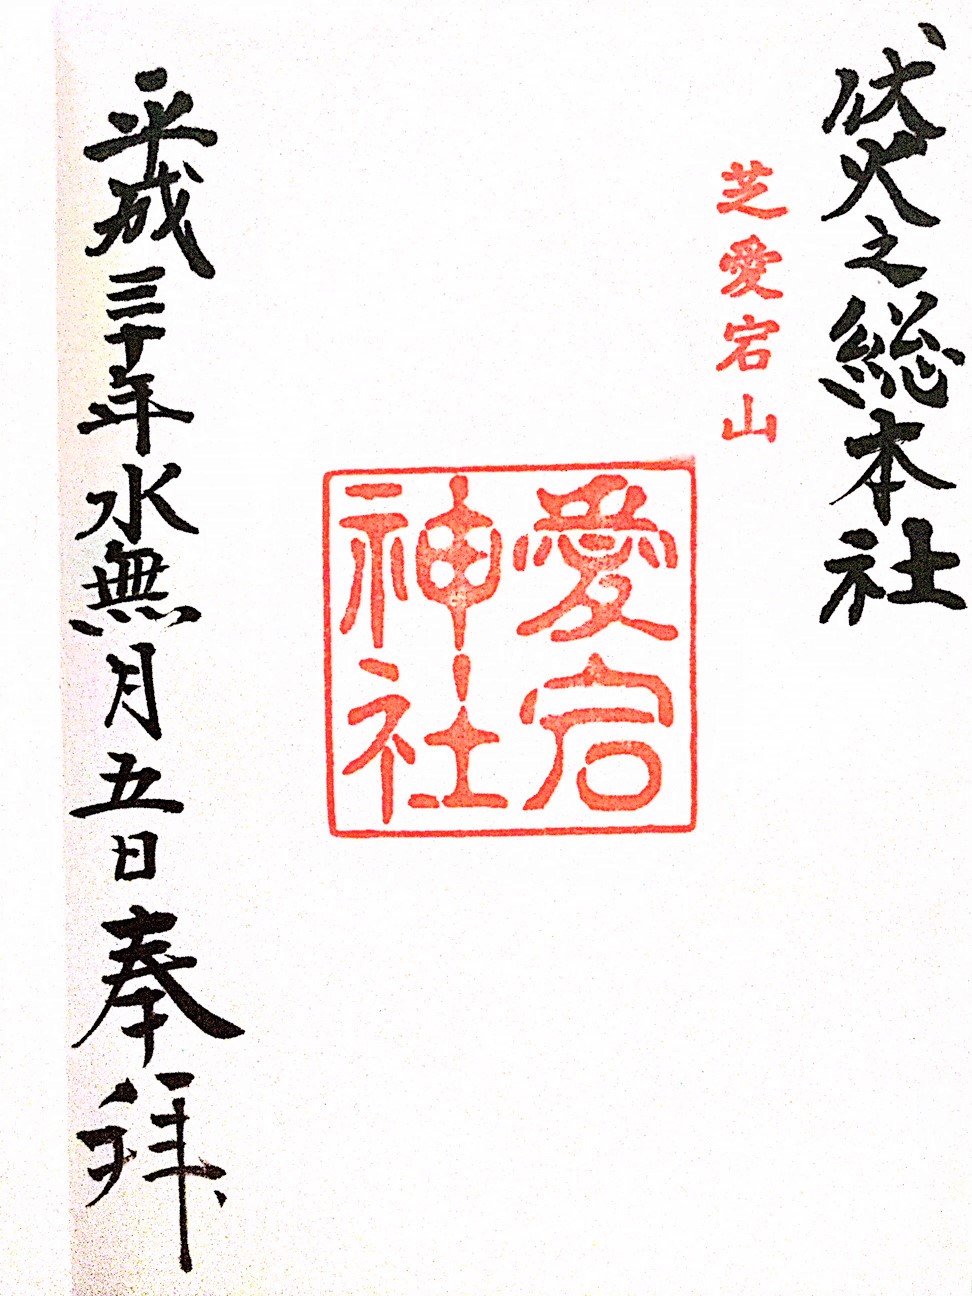 伏火之総本社
芝愛宕山
愛宕
神社
平成三十年水無月五日奉拝